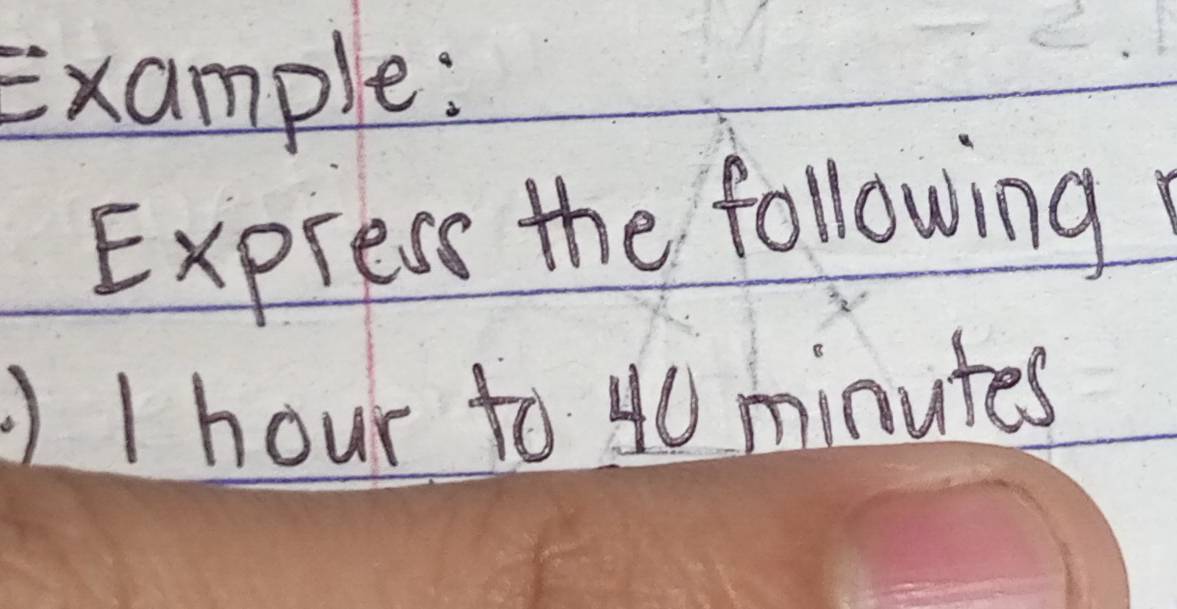 Example:
Express the following
.) 1 hour to 40 minutes